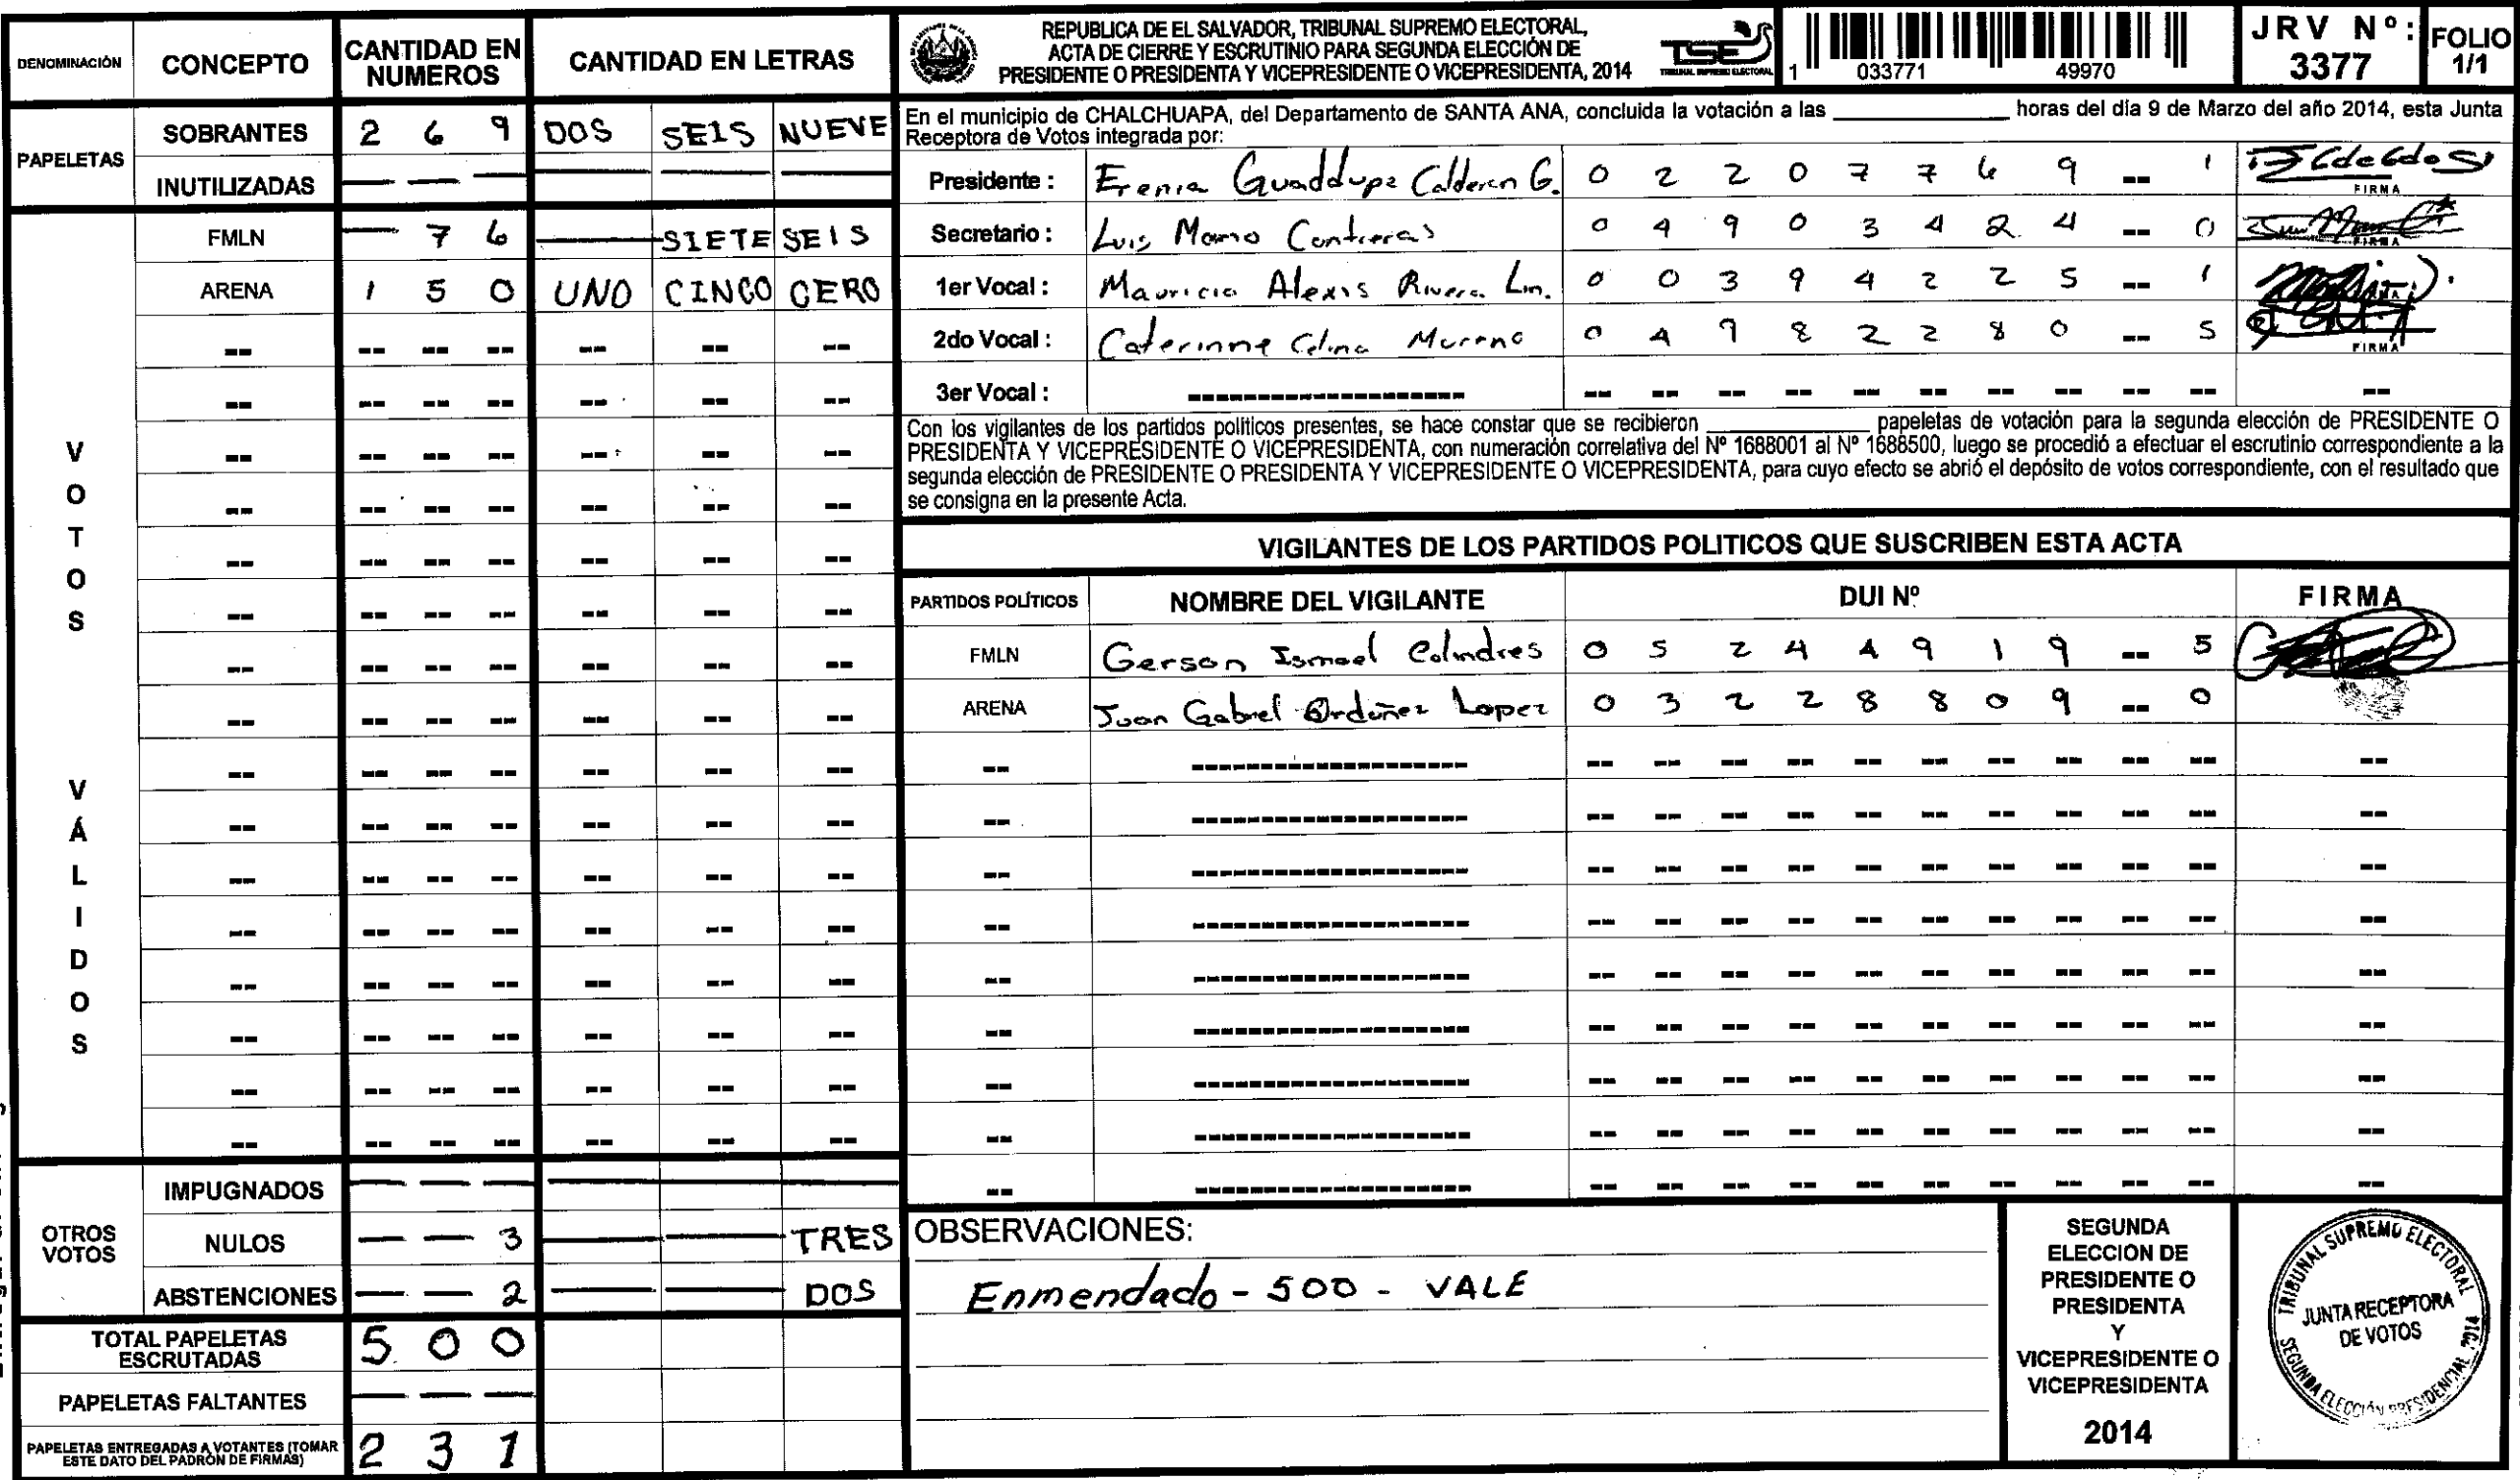 DENOMINACIÓN CONCEPTO CANTIDAD EN NUMEROS CANTIDAD EN LETRAS
PAPELETAS
SOBRANTES 2 6 9 DOS SEIS NUEVE
INUTILIZADAS — — — — — —
VOTOS VÁLIDOS
FMLN — 7 6 — SIETE SEIS
ARENA 1 5 0 UNO CINCO CERO
OTROS VOTOS
IMPUGNADOS — — — — — —
NULOS — — 3 — — TRES
ABSTENCIONES — — 2 — — DOS
TOTAL PAPELETAS ESCRUTADAS 5 0 0
PAPELETAS FALTANTES — — —
PAPELETAS ENTREGADAS A VOTANTES (TOMAR ESTE DATO DEL PADRÓN DE FIRMAS) 2 3 1
REPUBLICA DE EL SALVADOR, TRIBUNAL SUPREMO ELECTORAL,
ACTA DE CIERRE Y ESCRUTINIO PARA SEGUNDA ELECCIÓN DE
PRESIDENTE O PRESIDENTA Y VICEPRESIDENTE O VICEPRESIDENTA, 2014
TSE
TRIBUNAL SUPREMO ELECTORAL
1 033771 49970
JRV Nº: 3377
FOLIO 1/1
En el municipio de CHALCHUAPA, del Departamento de SANTA ANA, concluida la votación a las ____ horas del día 9 de Marzo del año 2014, esta Junta
Receptora de Votos integrada por:
Presidente : Erenia Guaddupe Calderon G. 0 2 2 0 7 7 6 9 -- 1 FIRMA
Secretario : Luis Mario Contreras 0 4 9 0 3 4 2 4 -- 0 FIRMA
1er Vocal : Mauricio Alexis Rivera Lin. 0 0 3 9 4 2 2 5 -- 1
2do Vocal : Caterinne Celina Moreno 0 4 9 8 2 2 8 0 -- 5 FIRMA
3er Vocal : -- -- -- -- -- -- -- -- -- -- --
Con los vigilantes de los partidos políticos presentes, se hace constar que se recibieron ____ papeletas de votación para la segunda elección de PRESIDENTE O
PRESIDENTA Y VICEPRESIDENTE O VICEPRESIDENTA, con numeración correlativa del Nº 1688001 al Nº 1688500, luego se procedió a efectuar el escrutinio correspondiente a la
segunda elección de PRESIDENTE O PRESIDENTA Y VICEPRESIDENTE O VICEPRESIDENTA, para cuyo efecto se abrió el depósito de votos correspondiente, con el resultado que
se consigna en la presente Acta.
VIGILANTES DE LOS PARTIDOS POLITICOS QUE SUSCRIBEN ESTA ACTA
PARTIDOS POLÍTICOS NOMBRE DEL VIGILANTE DUI Nº FIRMA
FMLN Gerson Ismael Colindres 0 5 2 4 4 9 1 9 -- 5
ARENA Juan Gabriel Ordoñez Lopez 0 3 2 2 8 8 0 9 -- 0
OBSERVACIONES:
Enmendado - 500 - VALE
SEGUNDA
ELECCION DE
PRESIDENTE O
PRESIDENTA
Y
VICEPRESIDENTE O
VICEPRESIDENTA
2014
TRIBUNAL SUPREMO ELECTORAL
JUNTA RECEPTORA
DE VOTOS
SEGUNDA ELECCIÓN PRESIDENCIAL 2014